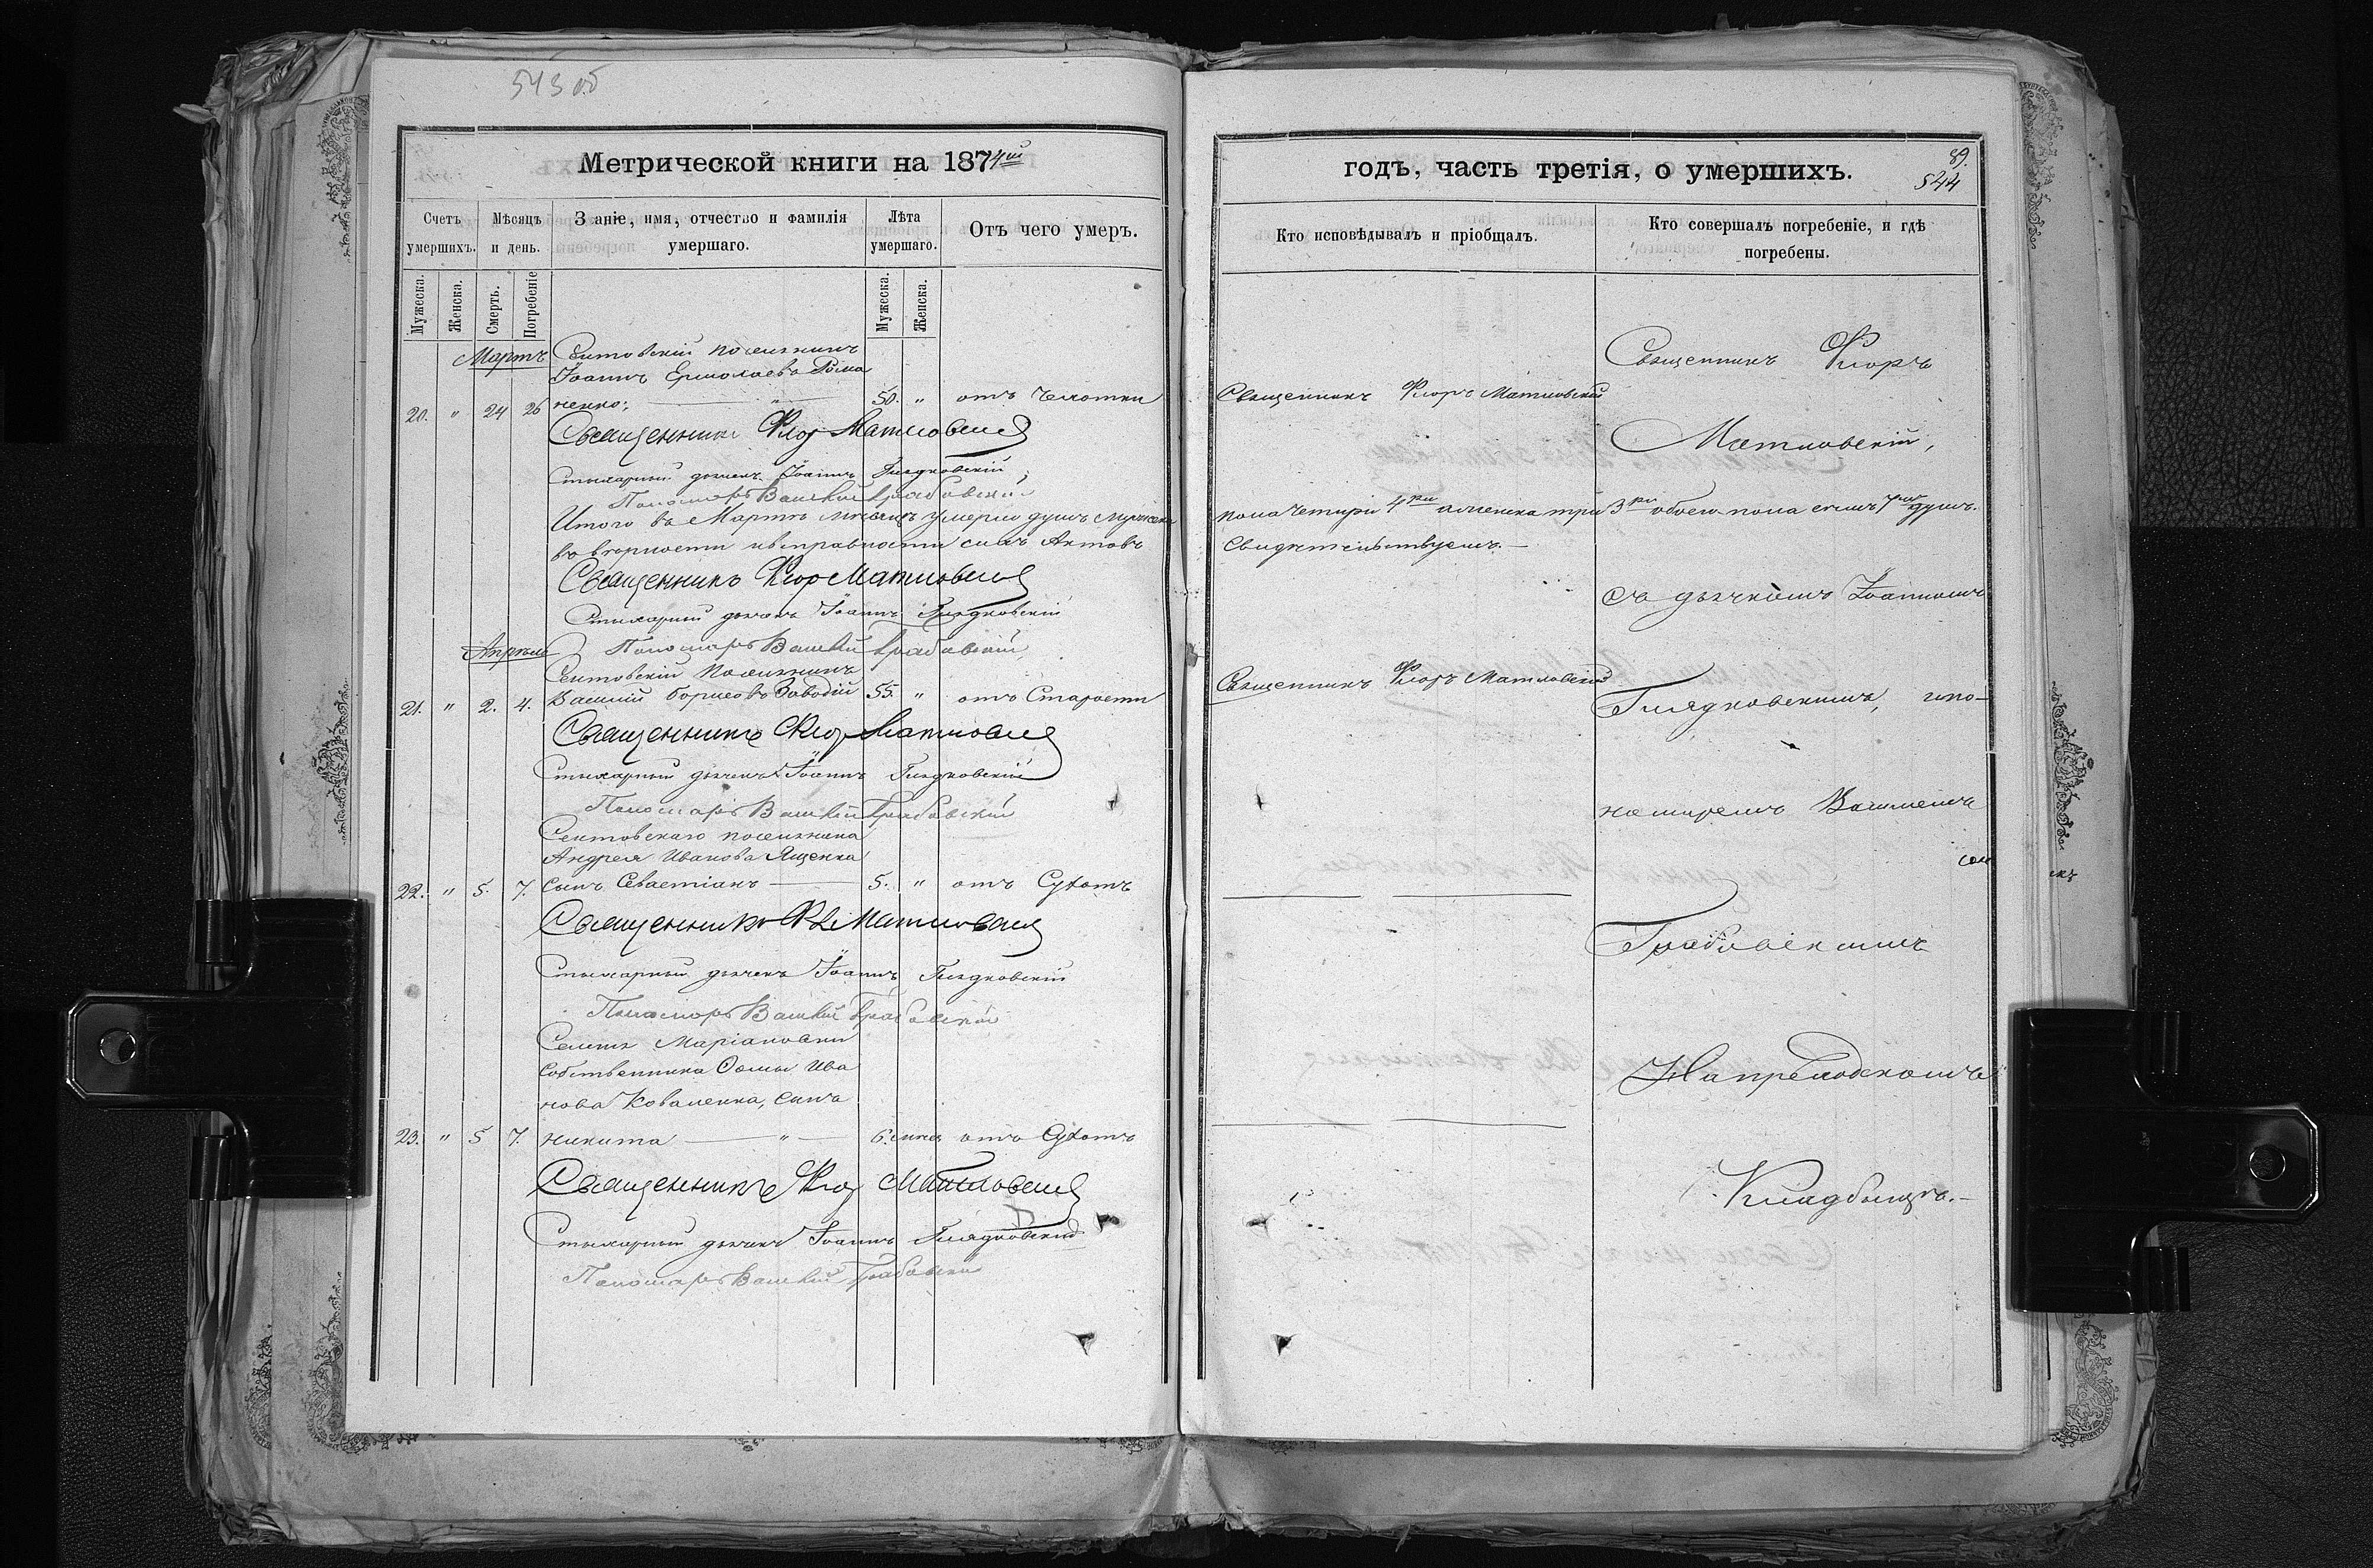 543 об
Метрической книги на 1874ый
Счетъ умершихъ.
Мѣсяцъ и день.
З аніе, имя, отчество и фамилія умершаго.
Лѣта умершаго.
Отъ чего умеръ.
Мужеска.
Женска.
Смерть.
Погребеніе
Мужеска.
Женска.
Мартъ
поселянинъ
Іоаннъ Ермолаевъ Рома
20. " 24 26 ненко; " 50. " отъ Чахотки
Священникъ Флоръ Матковскій
Стихарный дьячекъ Іоаннъ Глядковскій
Пономарь Василій Грабовскій
Итого въ Мартѣ мѣсяцѣ умерло душъ мужеска
въ вѣрности исправности сихъ Актовъ
Священникъ Флоръ Матковскій
Стихарный дьячекъ Іоаннъ Глядковскій
Апрѣль
Пономарь Василій Грабовскій
поселянинъ
21. " 2. 4. Василій Борисовъ 55. " отъ Старости
Священникъ Флоръ Матковскій
Стихарный дьячекъ Іоаннъ Глядковскій
Пономарь Василій Грабовскій
поселянина
Андрея Иванова Ященка
22. " 5. 7. сынъ Севастіанъ 5. " отъ Сухотъ
Священникъ Фл Матковскій
Стихарный дьячекъ Іоаннъ Глядковскій
Пономарь Василій Грабовскій
Маріановки
собственника Ива
нова Коваленка, сынъ
23. " 5 7. Никита " 6. мѣся отъ Сухотъ
Священникъ Флор Матковскій
Стихарный дьячекъ Іоаннъ Глядковскій
Пономарь Василій Грабовскій
годъ, часть третія, о умершихъ.
89.
544
Кто исповѣдывалъ и пріобщалъ.
Кто совершалъ погребеніе, и гдѣ погребены.
Священникъ Флоръ
Священникъ Флоръ Матковскій
Матковскій,
пола четыри 4ри а женска три 3ри обоего пола семь 7мь душъ.
свидѣтельствуемъ.
съ дьячкомъ Іоанномъ
Священникъ Флоръ Матковскій
Глядковскимъ, ипо-
номаремъ Василіемъ
Грабовскимъ
На приходскомъ
Кладбищѣ.